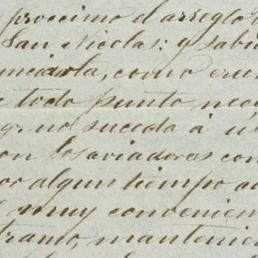 procsimo el arreglo
San Nicolas: y sabi
nciarla, como cre
todo punto nec
q. no suceda á u
on los aviadores con
or algun tiempo a
muy convenien
tramo, mantenie